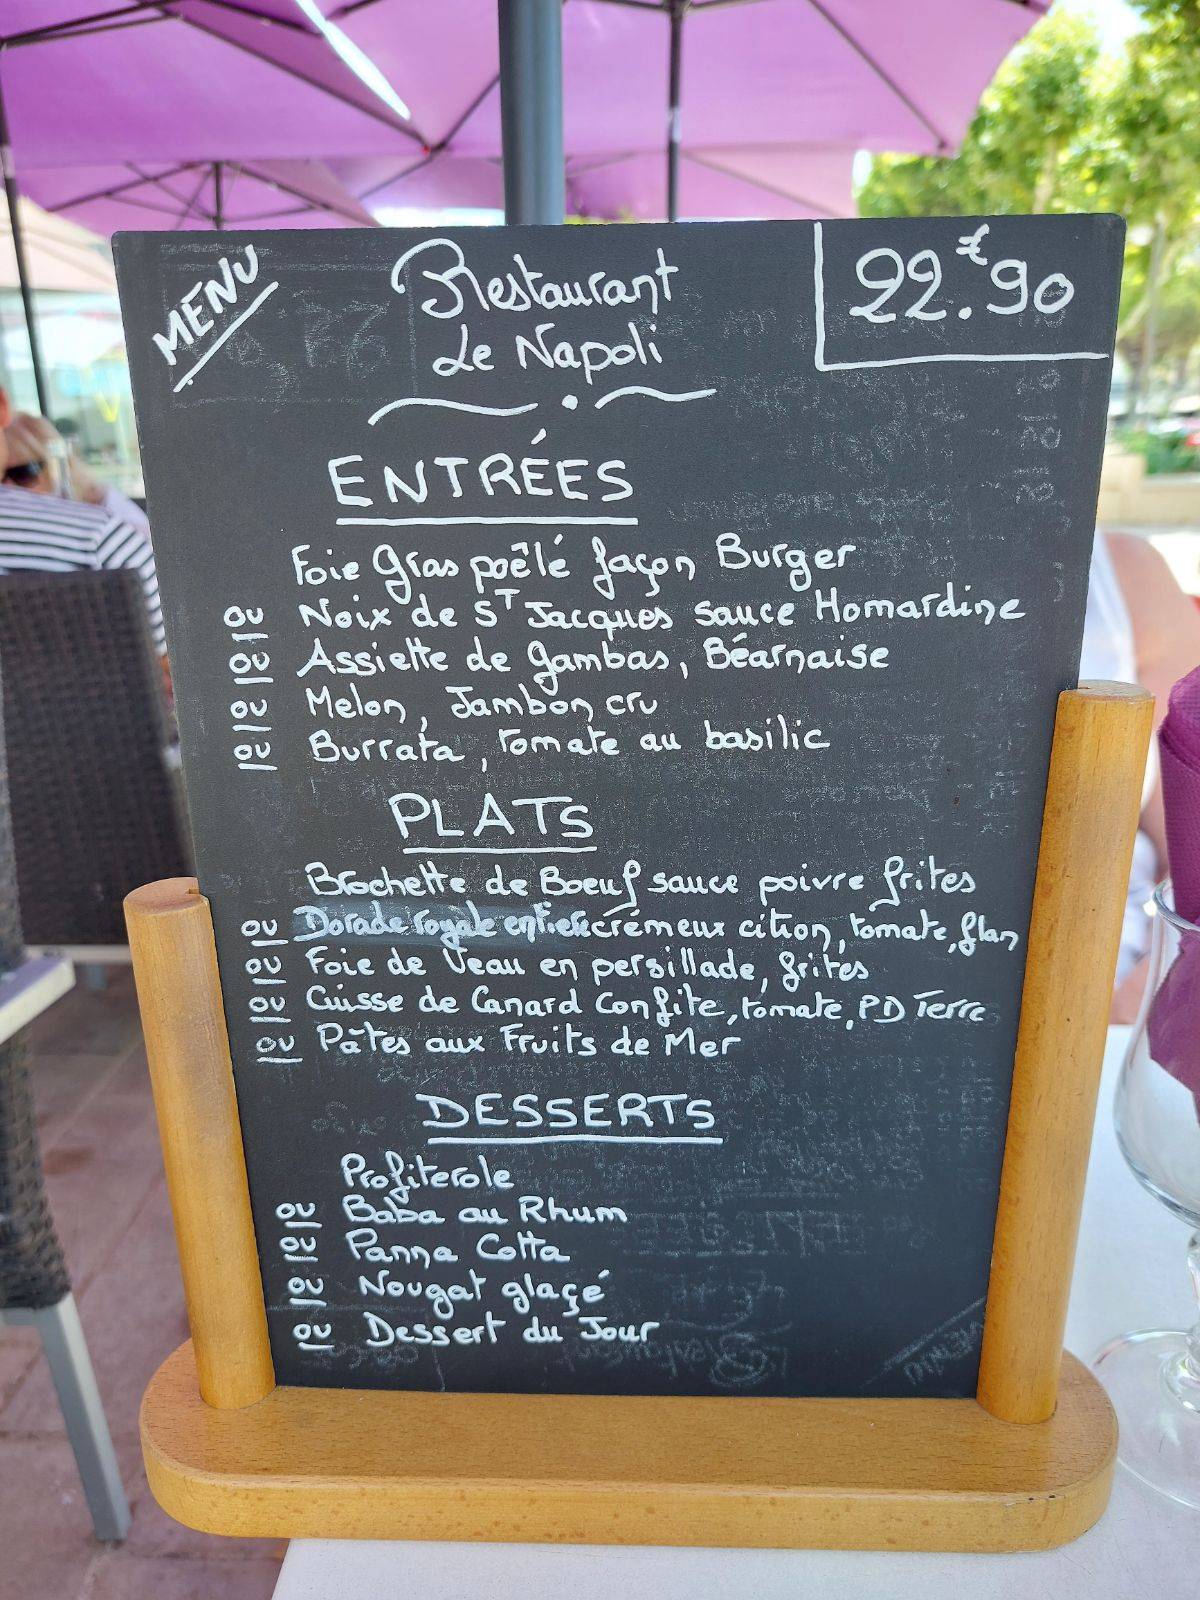 MENU
Restaurant
Le Napoli
22.€90
ENTRÉES
Foie Gras poêlé façon Burger
ou Noix de ST Jacques sauce Homardine
ou Assiette de Gambas, Béarnaise
ou Melon, Jambon cru
ou Burrata, tomate au basilic
PLATS
Brochette de Boeuf sauce poivre frites
ou Dorade royale entière crémeux citron, tomate, flan
ou Foie de Veau en persillade, frites
ou Cuisse de Canard Confite, tomate, PD Terre
ou Pâtes aux Fruits de Mer
DESSERTS
Profiterole
ou Baba au Rhum
ou Panna Cotta
ou Nougat glaçé
ou Dessert du Jour